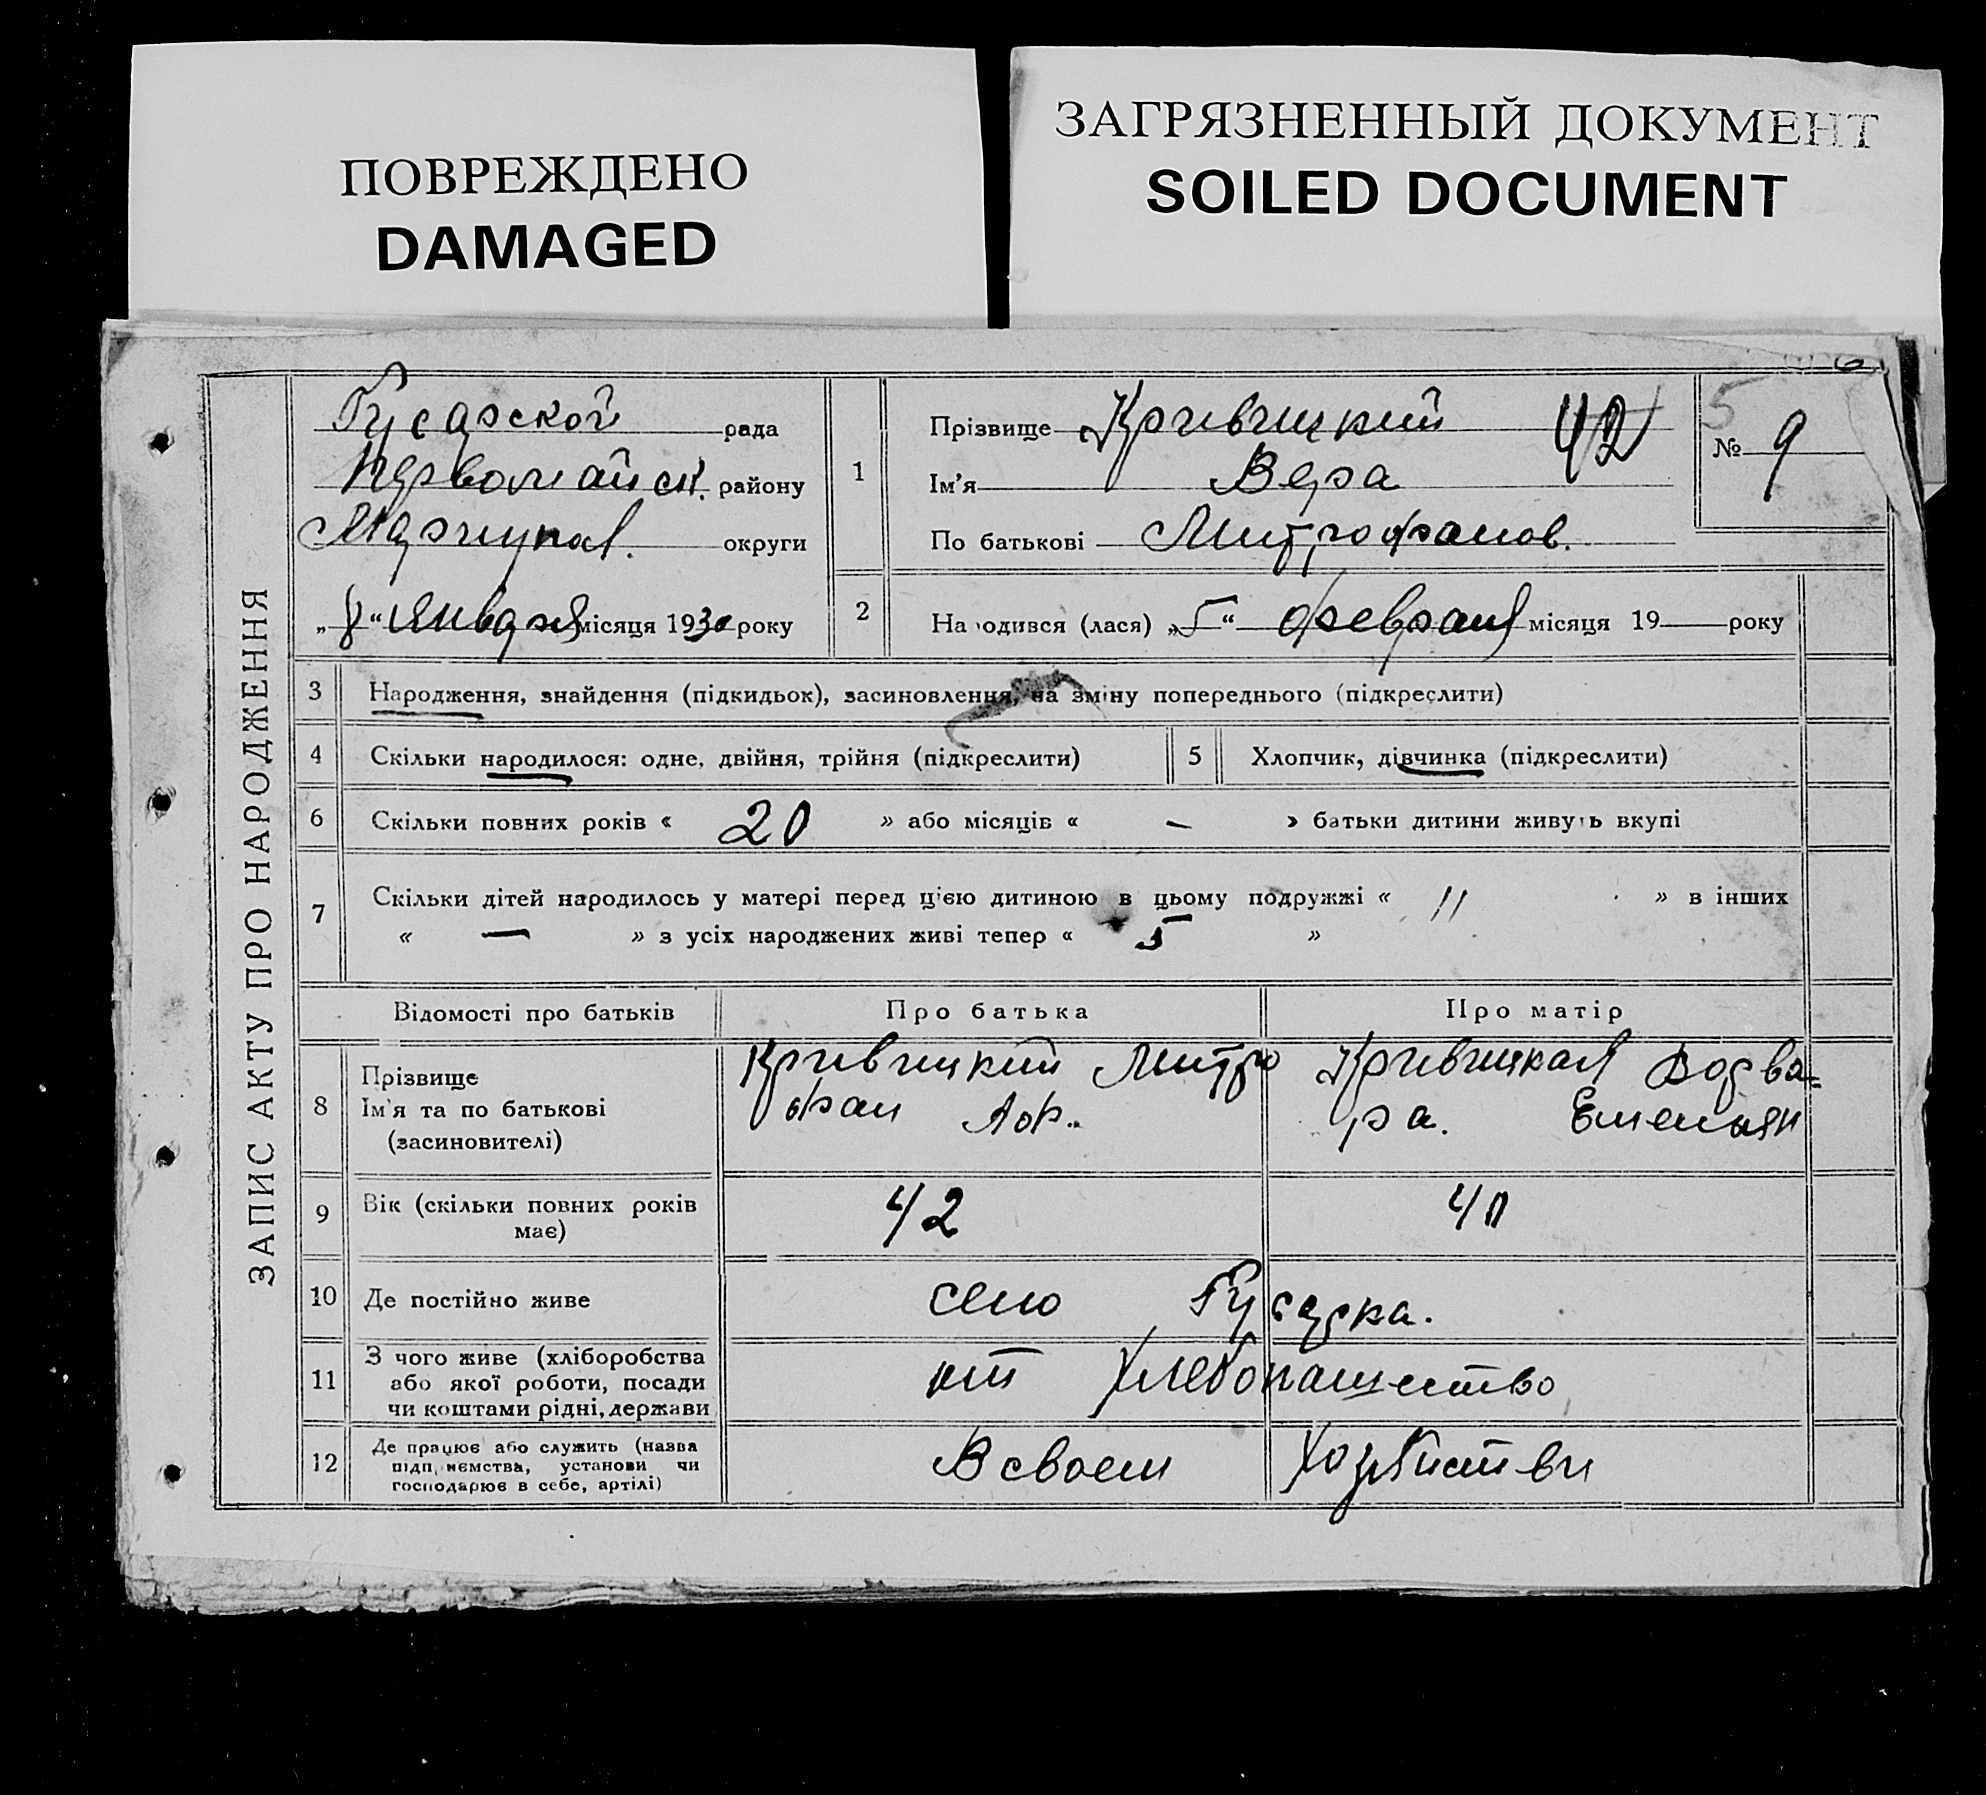 ПОВРЕЖДЕНО
DAMAGED
ЗАГРЯЗНЕННЫЙ ДОКУМЕНТ
SOILED DOCUMENT
ЗАПИС АКТУ ПРО НАРОДЖЕННЯ
Гусарской рада
Первомайск. району
Мариупол. округи
„8“ Января місяця 1930 року
1
Прізвище Кривицкий 42
Ім'я Вера
По батькові Митрофанов.
5
№ 9
2 Народився (лася) „5“ февраля місяця 19 року
3 Народження, знайдення (підкидьок), засиновлення, на зміну попереднього (підкреслити)
4 Скільки народилося: одне, двійня, трійня (підкреслити) 5 Хлопчик, дівчинка (підкреслити)
6 Скільки повних років « 20 » або місяців « — » батьки дитини живуть вкупі
7 Скільки дітей народилось у матері перед цією дитиною в цьому подружжі « 11 » в інших
« — » з усіх народжених живі тепер « 5 »
Відомості про батьків Про батька Про матір
8 Прізвище
Ім'я та по батькові
(засиновителі)
Кривицкий Митро
фан
Кривицкая
ра. Емельян
9 Вік (скільки повних років
має)
42 40
10 Де постійно живе село Гусарка.
11 З чого живе (хліборобства
або якої роботи, посади
чи коштами рідні, держави
от хлебопашество
12 Де працює або служить (назва
підприємства, установи чи
господарює в себе, артілі)
В своем Хозяйстви